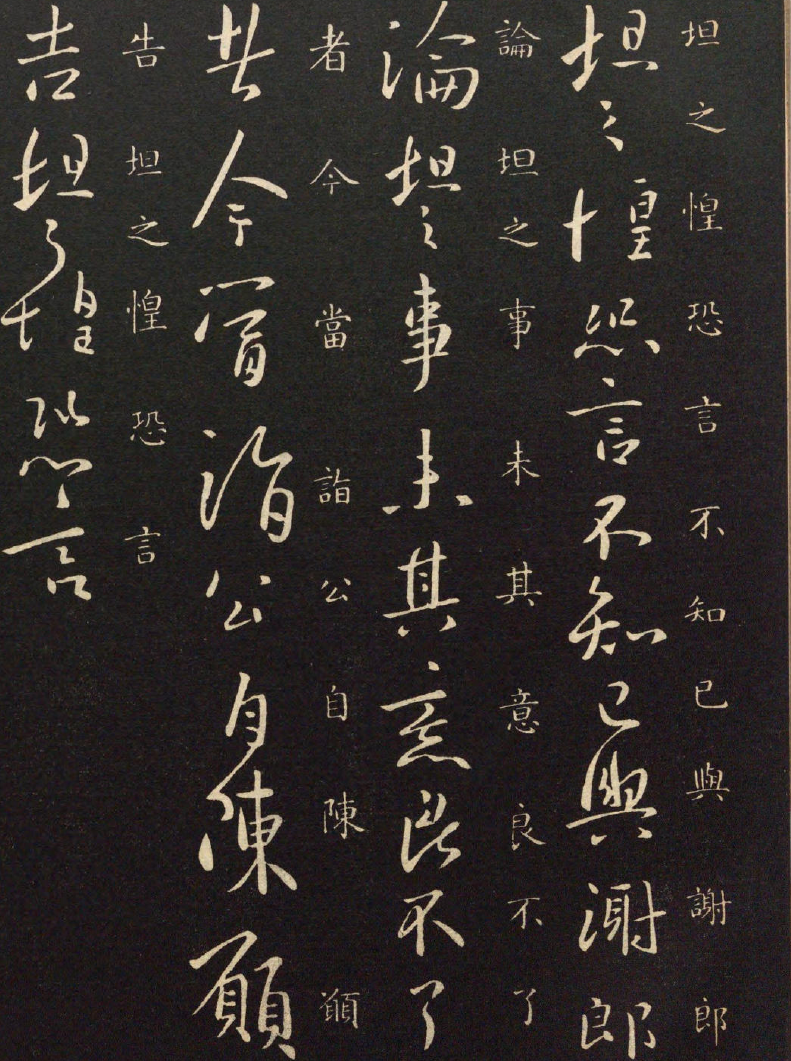 坦之惶恐言不知已與謝郎
坦之惶恐言不知已與謝郎
論坦之事未其意良不了
論坦之事未其意良不了
者今當詣公自陳願
者今當詣公自陳願
告坦之惶恐言
告坦之惶恐言